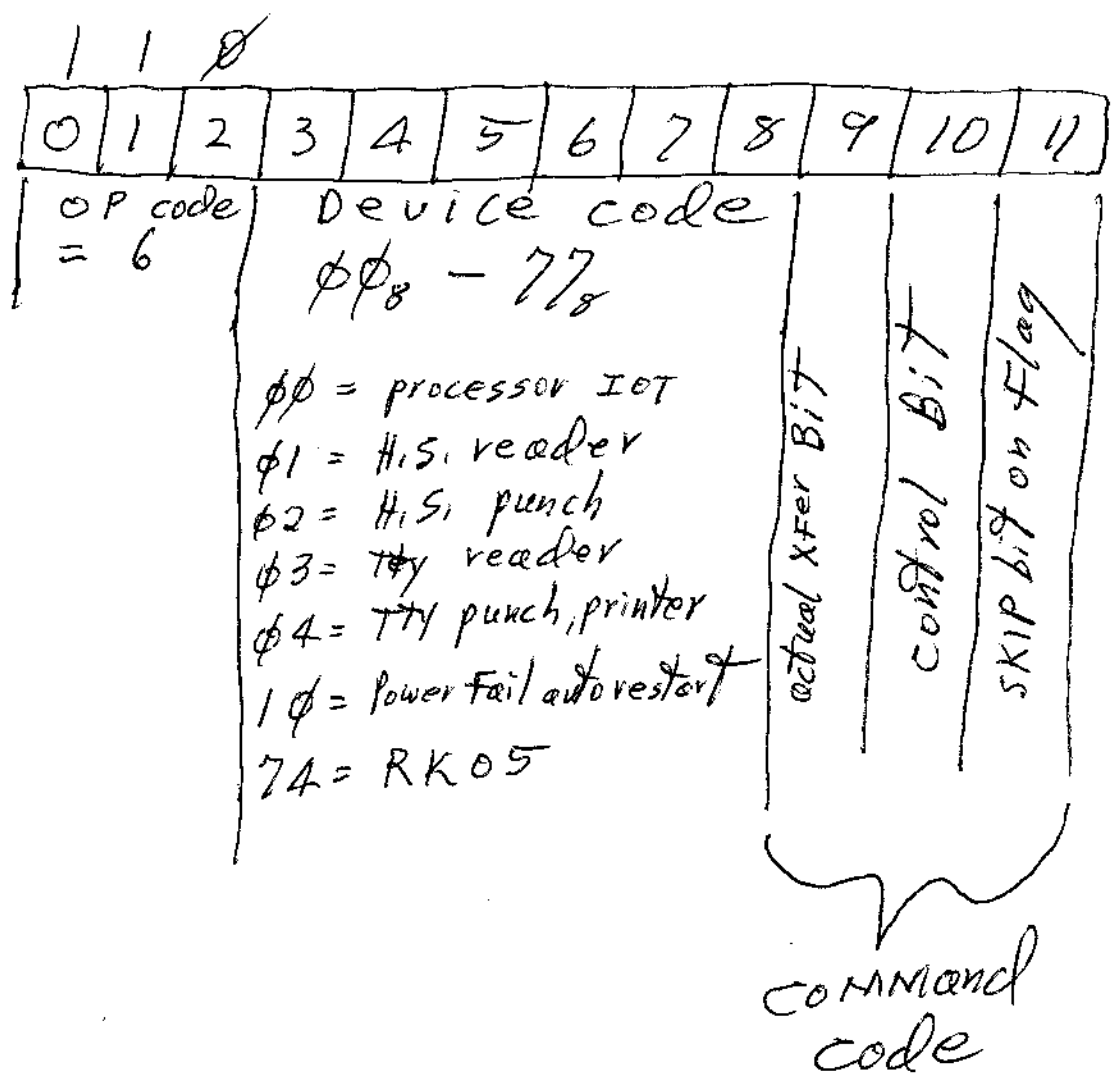 1 1 Ø
0 1 2 3 4 5 6 7 8 9 10 11
OP code
= 6
Device code
ØØ₈ - 77₈
ØØ = processor IOT
Ø1 = H.S. reader
Ø2 = H.S. punch
Ø3 = TTY reader
Ø4 = TTY punch, printer
1Ø = Power Fail auto restart
74 = RK05
actual XFer Bit
control Bit
SKIP bit on Flag
COMMand
code